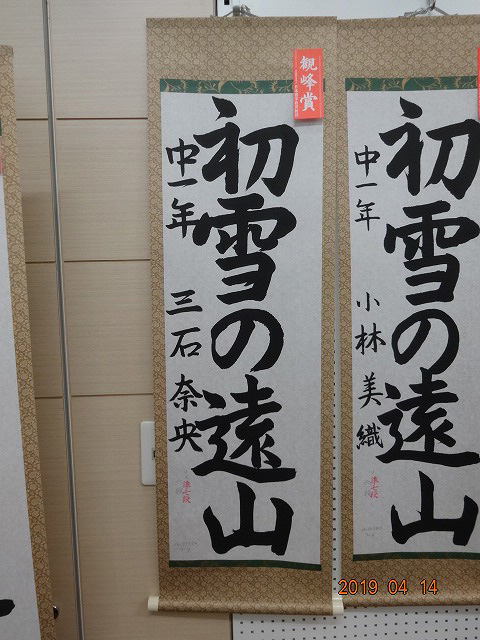 観峰賞
初雪の遠山
中一年 三石奈央
準七段
初雪の遠山
中一年 小林美織
準七段
2019 04 14